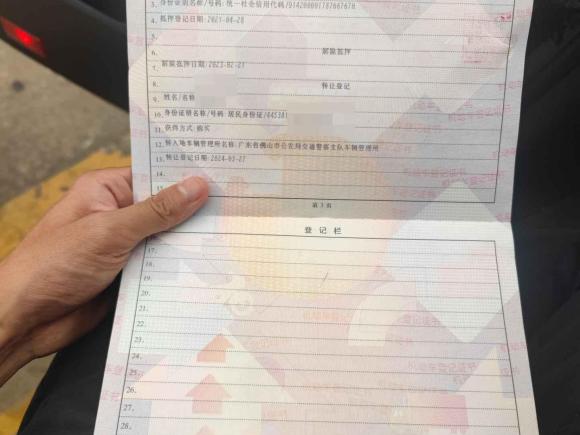 3. 身份证明名称/号码:统一社会信用代码/914200091787667670
4. 抵押登记日期:2021-04-28
5.
6. 解除抵押
7. 解除抵押日期:2023-02-21
8. 转让登记
9. 姓名/名称
10. 身份证明名称/号码:居民身份证/445381
11. 获得方式:购买
12. 转入地车辆管理所名称:广东省佛山市公安局交通警察支队车辆管理所
13. 转让登记日期:2024-03-27
14.
15.
第 3 页
登 记 栏
17.
18.
19.
20.
21.
22.
23.
24.
25.
26.
27.
28.
机动车登记证书